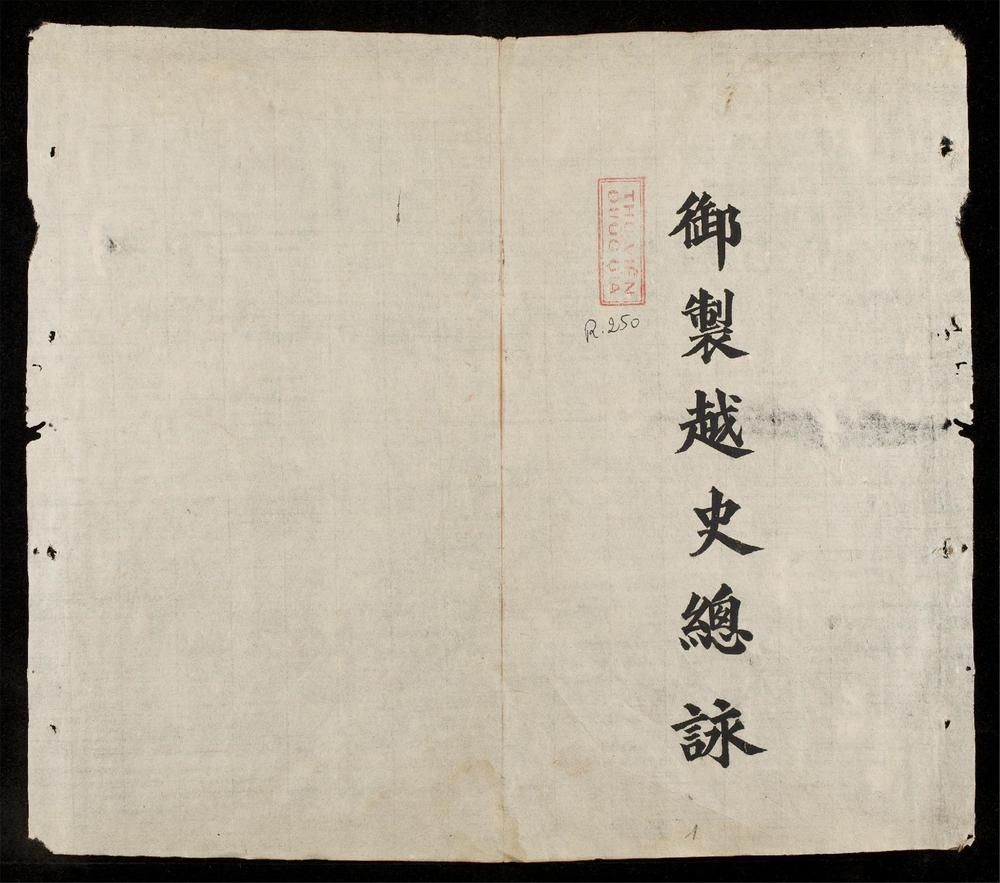 御製越史總詠
THƯ VIỆN
QUỐC GIA
R.250
1